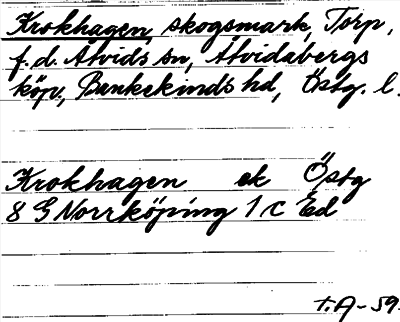 Krokhagen, skogsmark, Torp,
f.d. Åtvids sn, Åtvidabergs
köp., Bankekinds hd, Östg. l.
Krokhagen ek Östg
8 G Norrköping 1 c Ed
t. A-59.